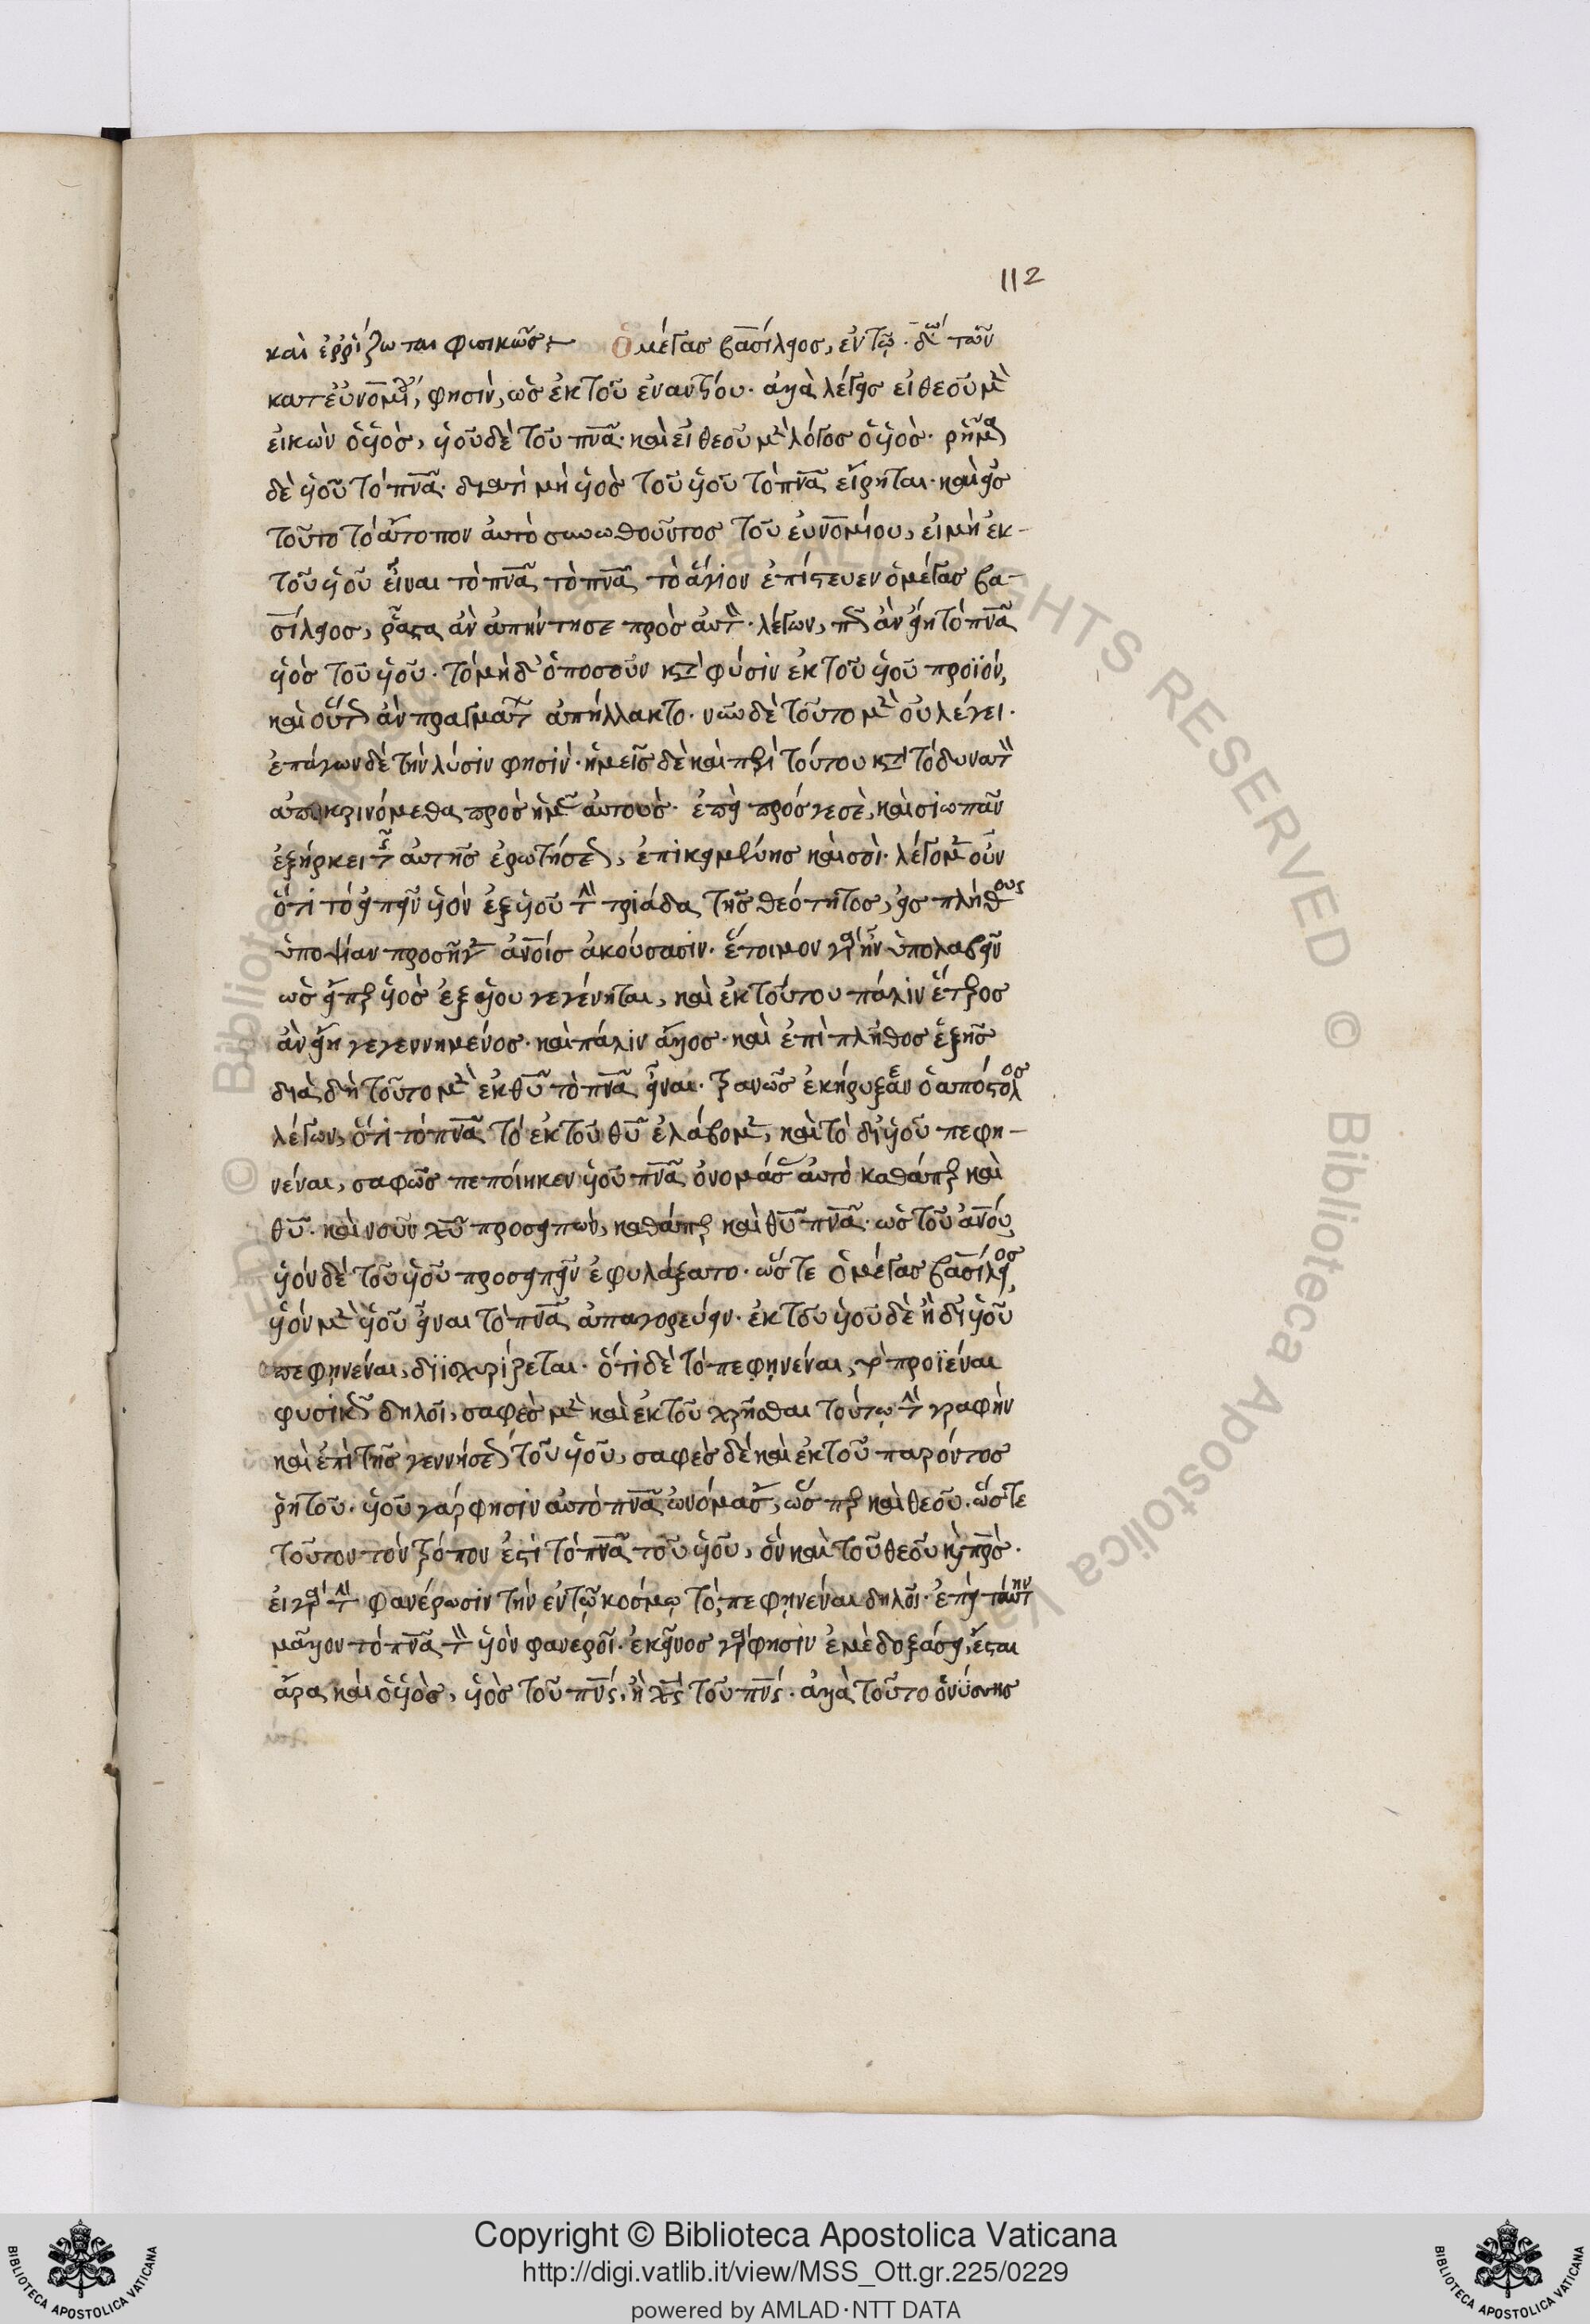 112
καὶ ἐρρίζωται φυσικῶς: Ὁ μέγας βασίλειος, ἐν τῷ δευ τῶν
κατ εὐνομίου, φησὶν, ὡς ἐκ τοῦ ἐναντίου. ἀλλὰ λέγεις εἰ θεοῦ μὲν
εἰκὼν ὁ υἱὸς, υἱοῦ δὲ τοῦ πνα. καὶ εἰ θεοῦ μὲν λόγος ὁ υἱὸς. ρῆμα
δὲ υἱοῦ τὸ πνα. διατὶ μὴ υἱὸς τοῦ υἱοῦ τὸ πνα εἴρηται. καὶ εἰς
τοῦτο τὸ ἄτοπον αὐτὸ συνωθοῦντος τοῦ εὐνομίου, εἰ μὴ ἐκ
τοῦ υἱοῦ εἶναι τὸ πνα τὸ πνα τὸ ἅγιον ἐπίστευεν ὁ μέγας βα-
σίλειος, ῥᾶστα ἀν ἀπήντησε πρὸς αὐτὸν λέγων, πῶς ἀν εἴη τὸ πνα
υἱὸς τοῦ υἱοῦ. τὸ μηδ' ὁποσοῦν κατὰ φύσιν ἐκ τοῦ υἱοῦ προϊόν,
καὶ οὕτως ἀν πραγμάτων ἀπήλλακτο. νῦν δὲ τοῦτο μὲν οὐ λέγει.
ἐπάγων δὲ τὴν λύσιν φησίν. ἡμεῖς δὲ καὶ περὶ τούτου κατὰ τὸ δυνατὸν
ἀποκρινόμεθα πρὸς ἡμᾶς αὐτοὺς. ἐπεὶ πρός γε σὲ, καὶ σιωπᾶν
ἐξήρκει τῆς αὐτῆς ἐρωτήσεως, ἐπικειμένης καὶ σοὶ. λέγομεν οὖν
ὅτι τὸ εἰπεῖν υἱὸν ἐξ υἱοῦ τὴν τριάδα τῆς θεότητος, εἰς πλήθους
ὑποψίαν προσῆγεν ἀνοις ἀκούσασιν. ἕτοιμον γὰρ ἦν ὑπολαβεῖν
ὡς εἴπερ υἱὸς ἐξ υἱου γεγένηται, καὶ ἐκ τούτου πάλιν ἕτερος
ἀν εἴη γεγεννημένος. καὶ πάλιν ἄλλος. καὶ ἐπὶ πλῆθος ἑξῆς
διὰ δὴ τοῦτο μὲν ἐκ θυ τὸ πνα εἶναι. τρανῶς ἐκήρυξεν ὁ απόστολος
λέγων, ὅτι τὸ πνα τὸ ἐκ τοῦ θυ ἐλάβομεν, καὶ τὸ δι' υἱοῦ πεφη-
νέναι, σαφῶς πεποίηκεν υἱοῦ πνα ὀνομάσας αὐτὸ καθάπερ καὶ
θυ. καὶ νοῦν χυ προσειπὼν, καθάπερ καὶ θυ πνα. ὡς τοῦ ἀνου,
υἱὸν δὲ τοῦ υἱοῦ προσειπεῖν ἐφυλάξατο. ὥστε ὁ μέγας βασίλειος,
υἱὸν μὲν υἱοῦ εἶναι τὸ πνα ἀπαγορεύειν. ἐκ τοῦ υἱοῦ δὲ ἢ δι' υἱοῦ
πεφηνέναι, διϊσχυρίζεται. ὅτι δὲ τὸ πεφηνέναι, τὸ προϊέναι
φυσικῶς δηλοῖ, σαφὲς μὲν καὶ ἐκ τοῦ χρῆσθαι τούτῳ τὴν γραφὴν
καὶ ἐπὶ τῆς γεννήσεως τοῦ υἱοῦ, σαφὲς δὲ καὶ ἐκ τοῦ παρόντος
ῥητοῦ. υἱοῦ γάρ φησιν αὐτὸ πνα ὠνόμασεν, ὥσπερ καὶ θεοῦ. ὥστε
τοῦτον τὸν τρόπον ἐστὶ τὸ πνα τοῦ υἱοῦ, ὃν καὶ τοῦ θεοῦ καὶ πρς.
εἰ γὰρ τὴν φανέρωσιν τὴν ἐν τῷ κόσμῳ τὸ πεφηνέναι δηλοῖ. ἐπεὶ ταύτην
μᾶλλον τὸ πνα τὸν υἱὸν φανεροῖ. ἐκεῖνος γάρ φησιν ἐμὲ δοξάσει, ἔσται
ἄρα καὶ ὁ υἱὸς, υἱὸς τοῦ πνς, ἢ χς τοῦ πνς. ἀλλὰ τοῦτο
Copyright © Biblioteca Apostolica Vaticana
http://digi.vatlib.it/view/MSS_Ott.gr.225/0229
powered by AMLAD·NTT DATA
BIBLIOTECA APOSTOLICA VATICANA
BIBLIOTECA APOSTOLICA VATICANA